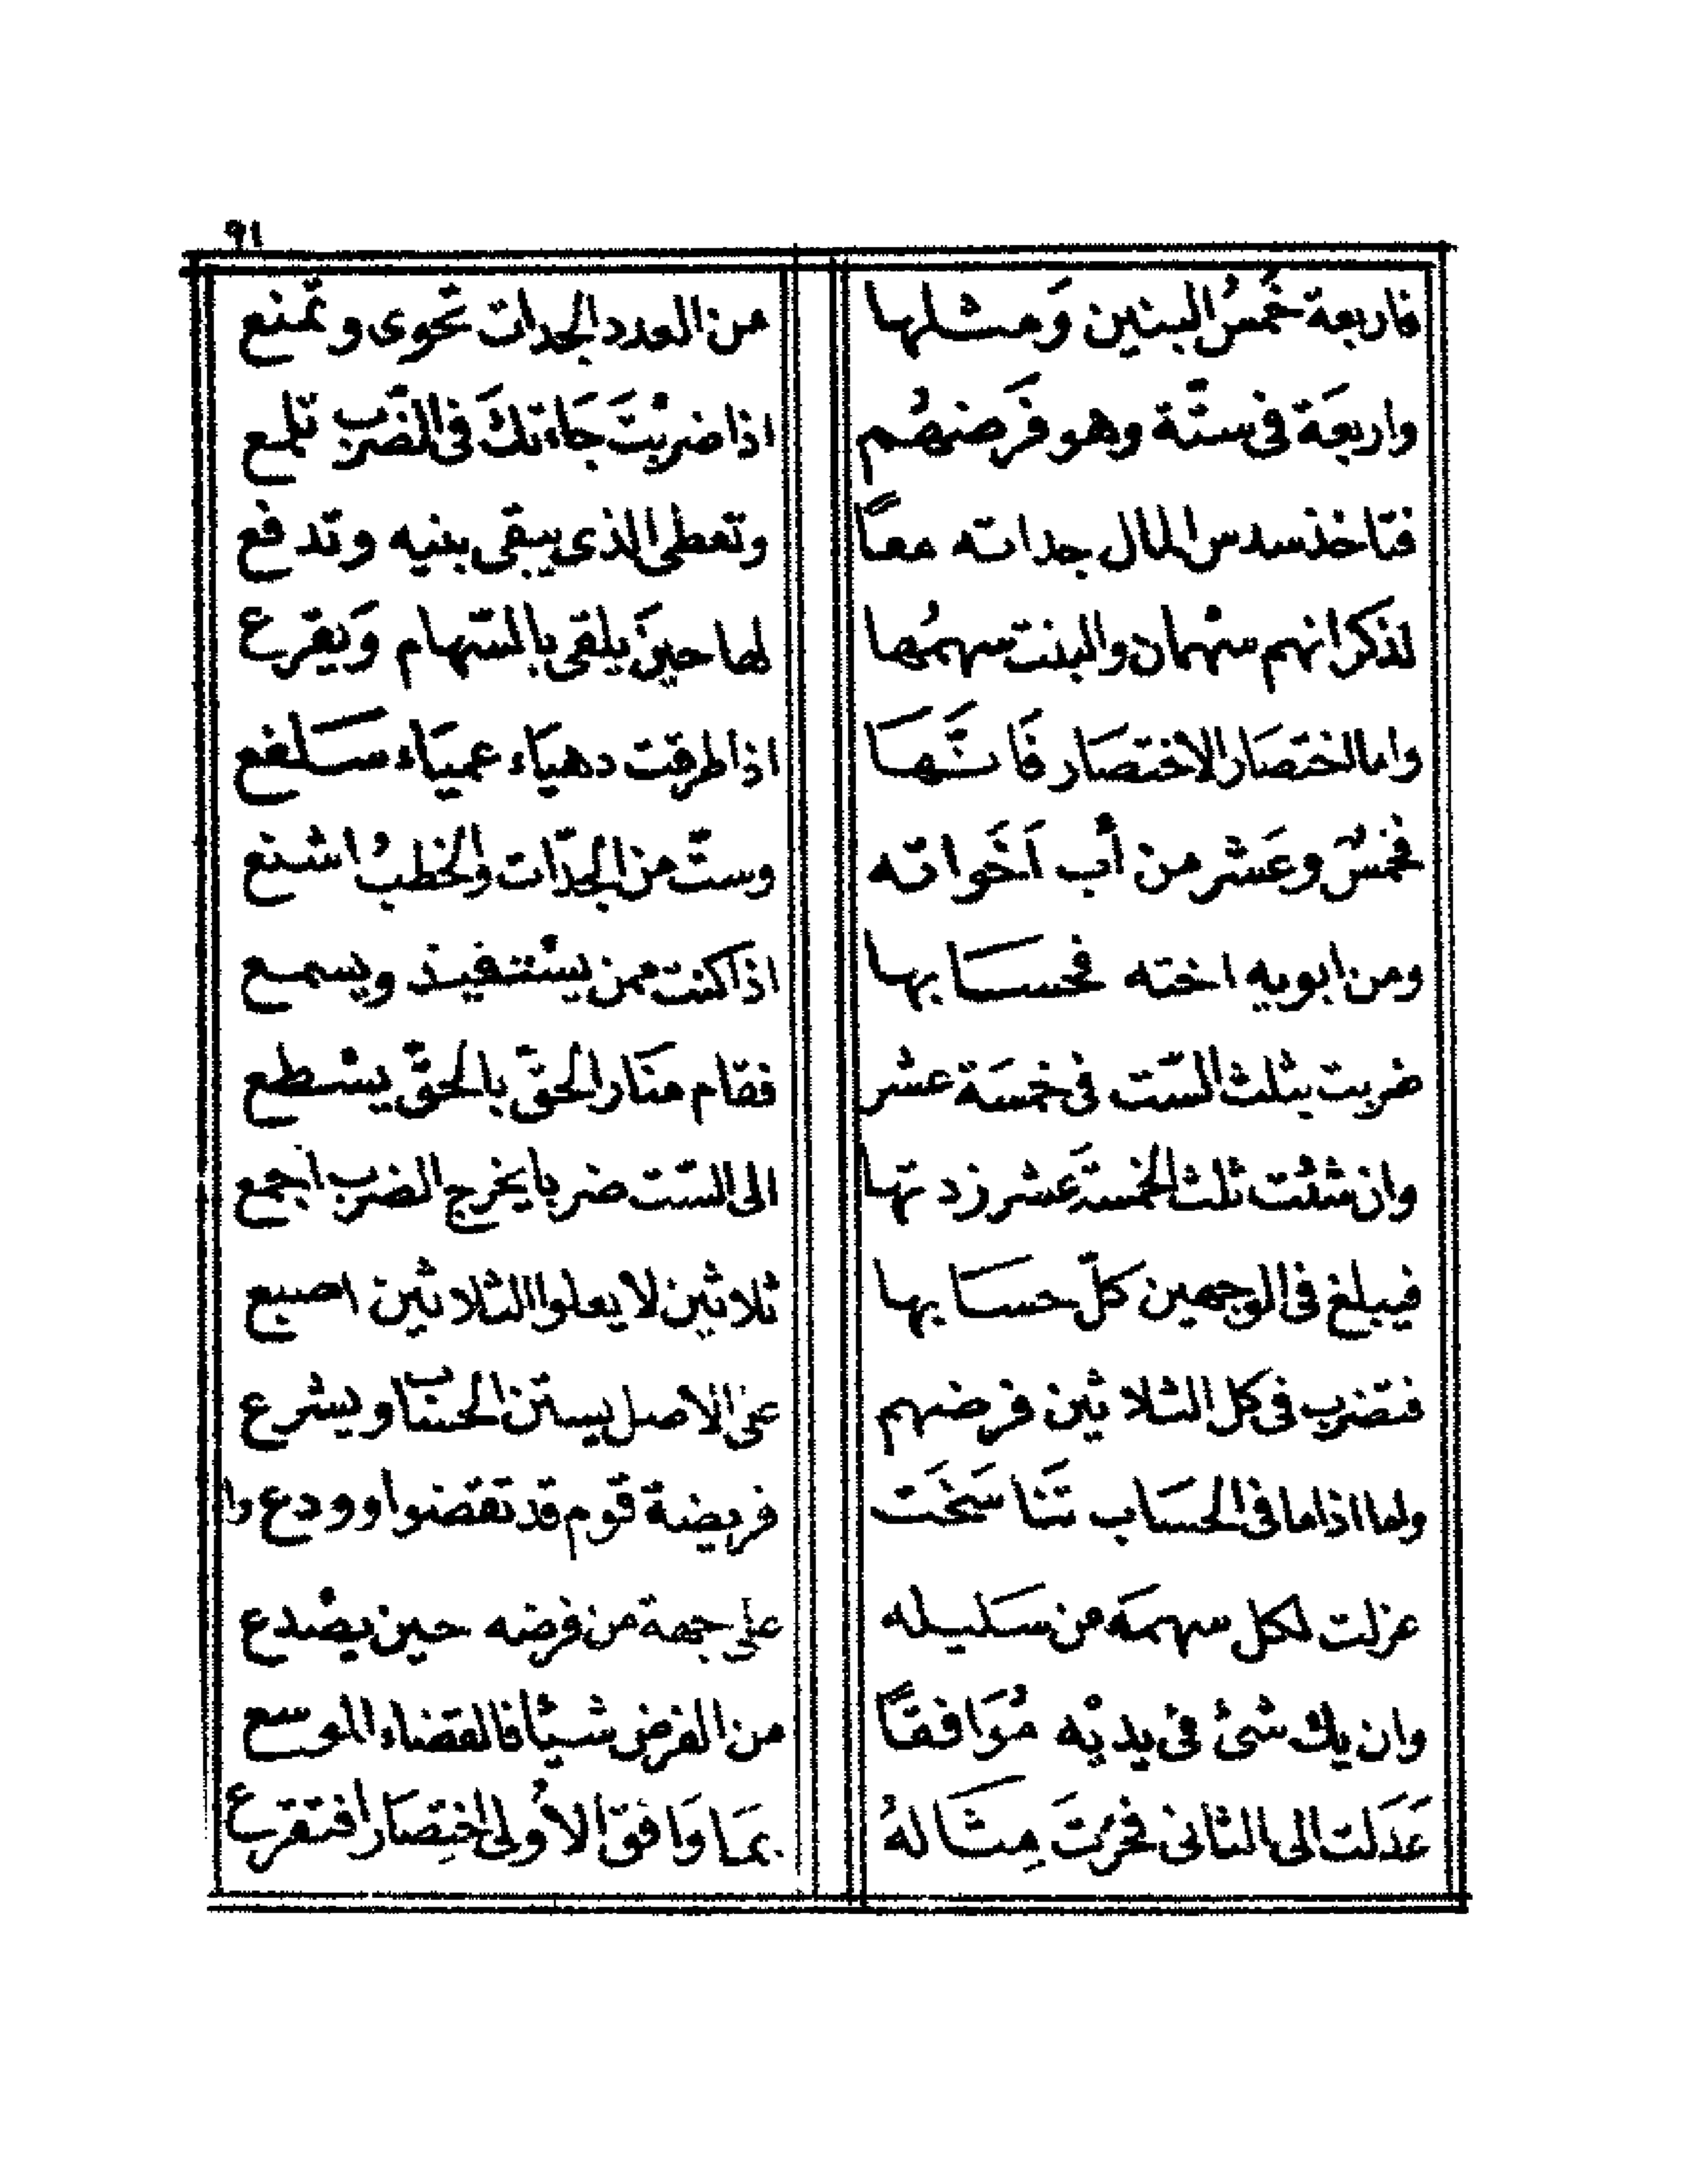 ٩١
فاربعة خُمسُ البنين وَمثلها من العدد الجدات تحوى وتمنع
واربعَة فى ستّة وهو فَرضهُم اذا ضربْتَ جَاءتكَ فى الضّرب تلمع
فتاخذ سدس المال جداته معًا وتعطى الذى يبقى بنيه وتدفع
لذكرانهم سهْمان والبنت سهمُها لها حينَ يلقى بالسّهام وَيقرع
واما اختصَار الاختصَار فَانَّهَا اذا طرقت دهيَاء عميَاء سَلفع
فخمسٌ وعَشر من أب اَخَواته وستّ من الجدّات والخطبُ اشنع
ومن ابويه اخته فحسَابها اذا كنت ممن يسْتفيذ ويسمع
ضربت بثلث السّت فى خمسَة عشر فقام منَار الحقّ بالحقّ يسْطع
وان شئت ثلث الخمسةَ عشر زدتها الى السّت ضربا يخرج الضرب اجمع
فيبلغ فى الوجهين كلّ حسَابها ثلاثين لا يعلوا الثلاثين اصبع
فتضرب فى كل الثلاثين فرضهم على الاصل يستن الحساب ويشرع
واما اذا ما فى الحسَاب تَنَاسَخَت فريضة قوم قد تقضوا وودعوا
عزلت لكل سهمَه من سَليله على جهة من فرضه حين يصْدع
وان يك شئ فى يديْه مُوَافقًا من الفرض شيئا فالقضاء الموسع
عَدَلت الى الثانى فحُزْتَ مِثَالهُ بمَا وَافقَ الأُولى اختِصَارا فتقرع